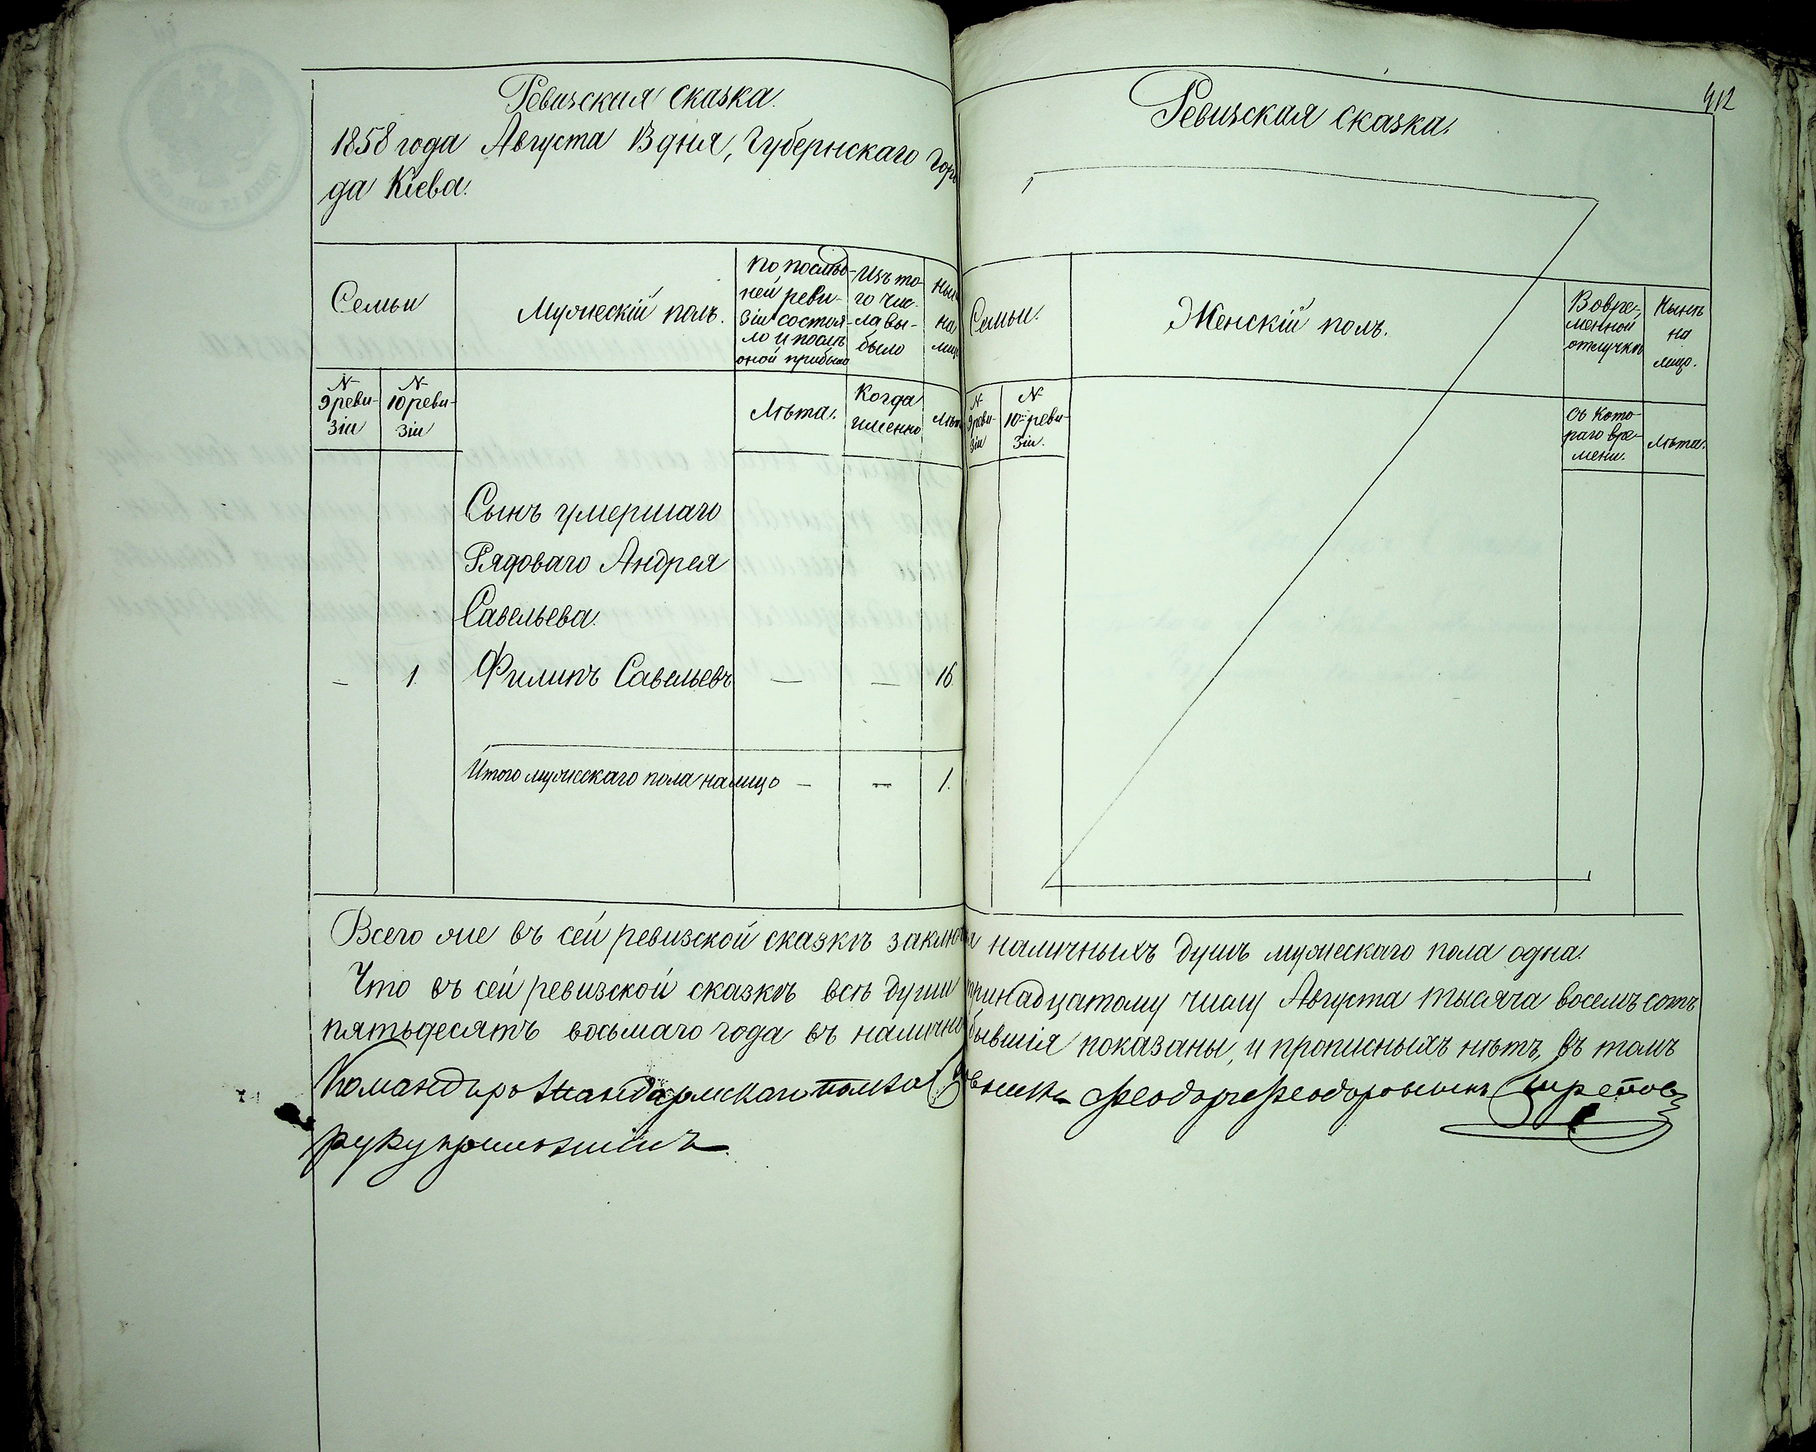 Ревизская сказка.
1858 года Августа 13 дня, Губернскаго Горо
да Кіева.
Семьи
Мужескій полъ.
По послѣд-
ней реви-
зіи состоя-
ло и послѣ
оной прибыло
Изъ то-
го чис-
ла вы-
было
Ны
на
лиц
№
9 реви-
зіи
№
10 реви-
зіи
Лѣта.
Когда
именно
Лѣт
Сынъ умершаго
Рядоваго Андрея
Савельева.
— 1. Филипъ Савельевъ — — 16
Итого мужескаго пола налицо — — 1.
912
Ревизская сказка.
Семьи.
Женскій полъ.
Во вре-
менной
отлучкѣ
Нынѣ
на
лицо.
№
9 реви-
зіи
№
10й реви-
зіи.
Съ кото-
раго вре-
мени.
Лѣта.
Всего же въ сей ревизской сказкѣ заклю наличныхъ душъ мужескаго пола одна.
Что въ сей ревизской сказкѣ всѣ души тринадцатому числу Августа тысяча восемъ сотъ
пятьдесятъ восьмаго года въ налично бывшія показаны, и прописныхъ нѣтъ, въ томъ
Командиръ Жандармскаго полка Феодоръ Феодоровичъ Треповъ
руку приложилъ